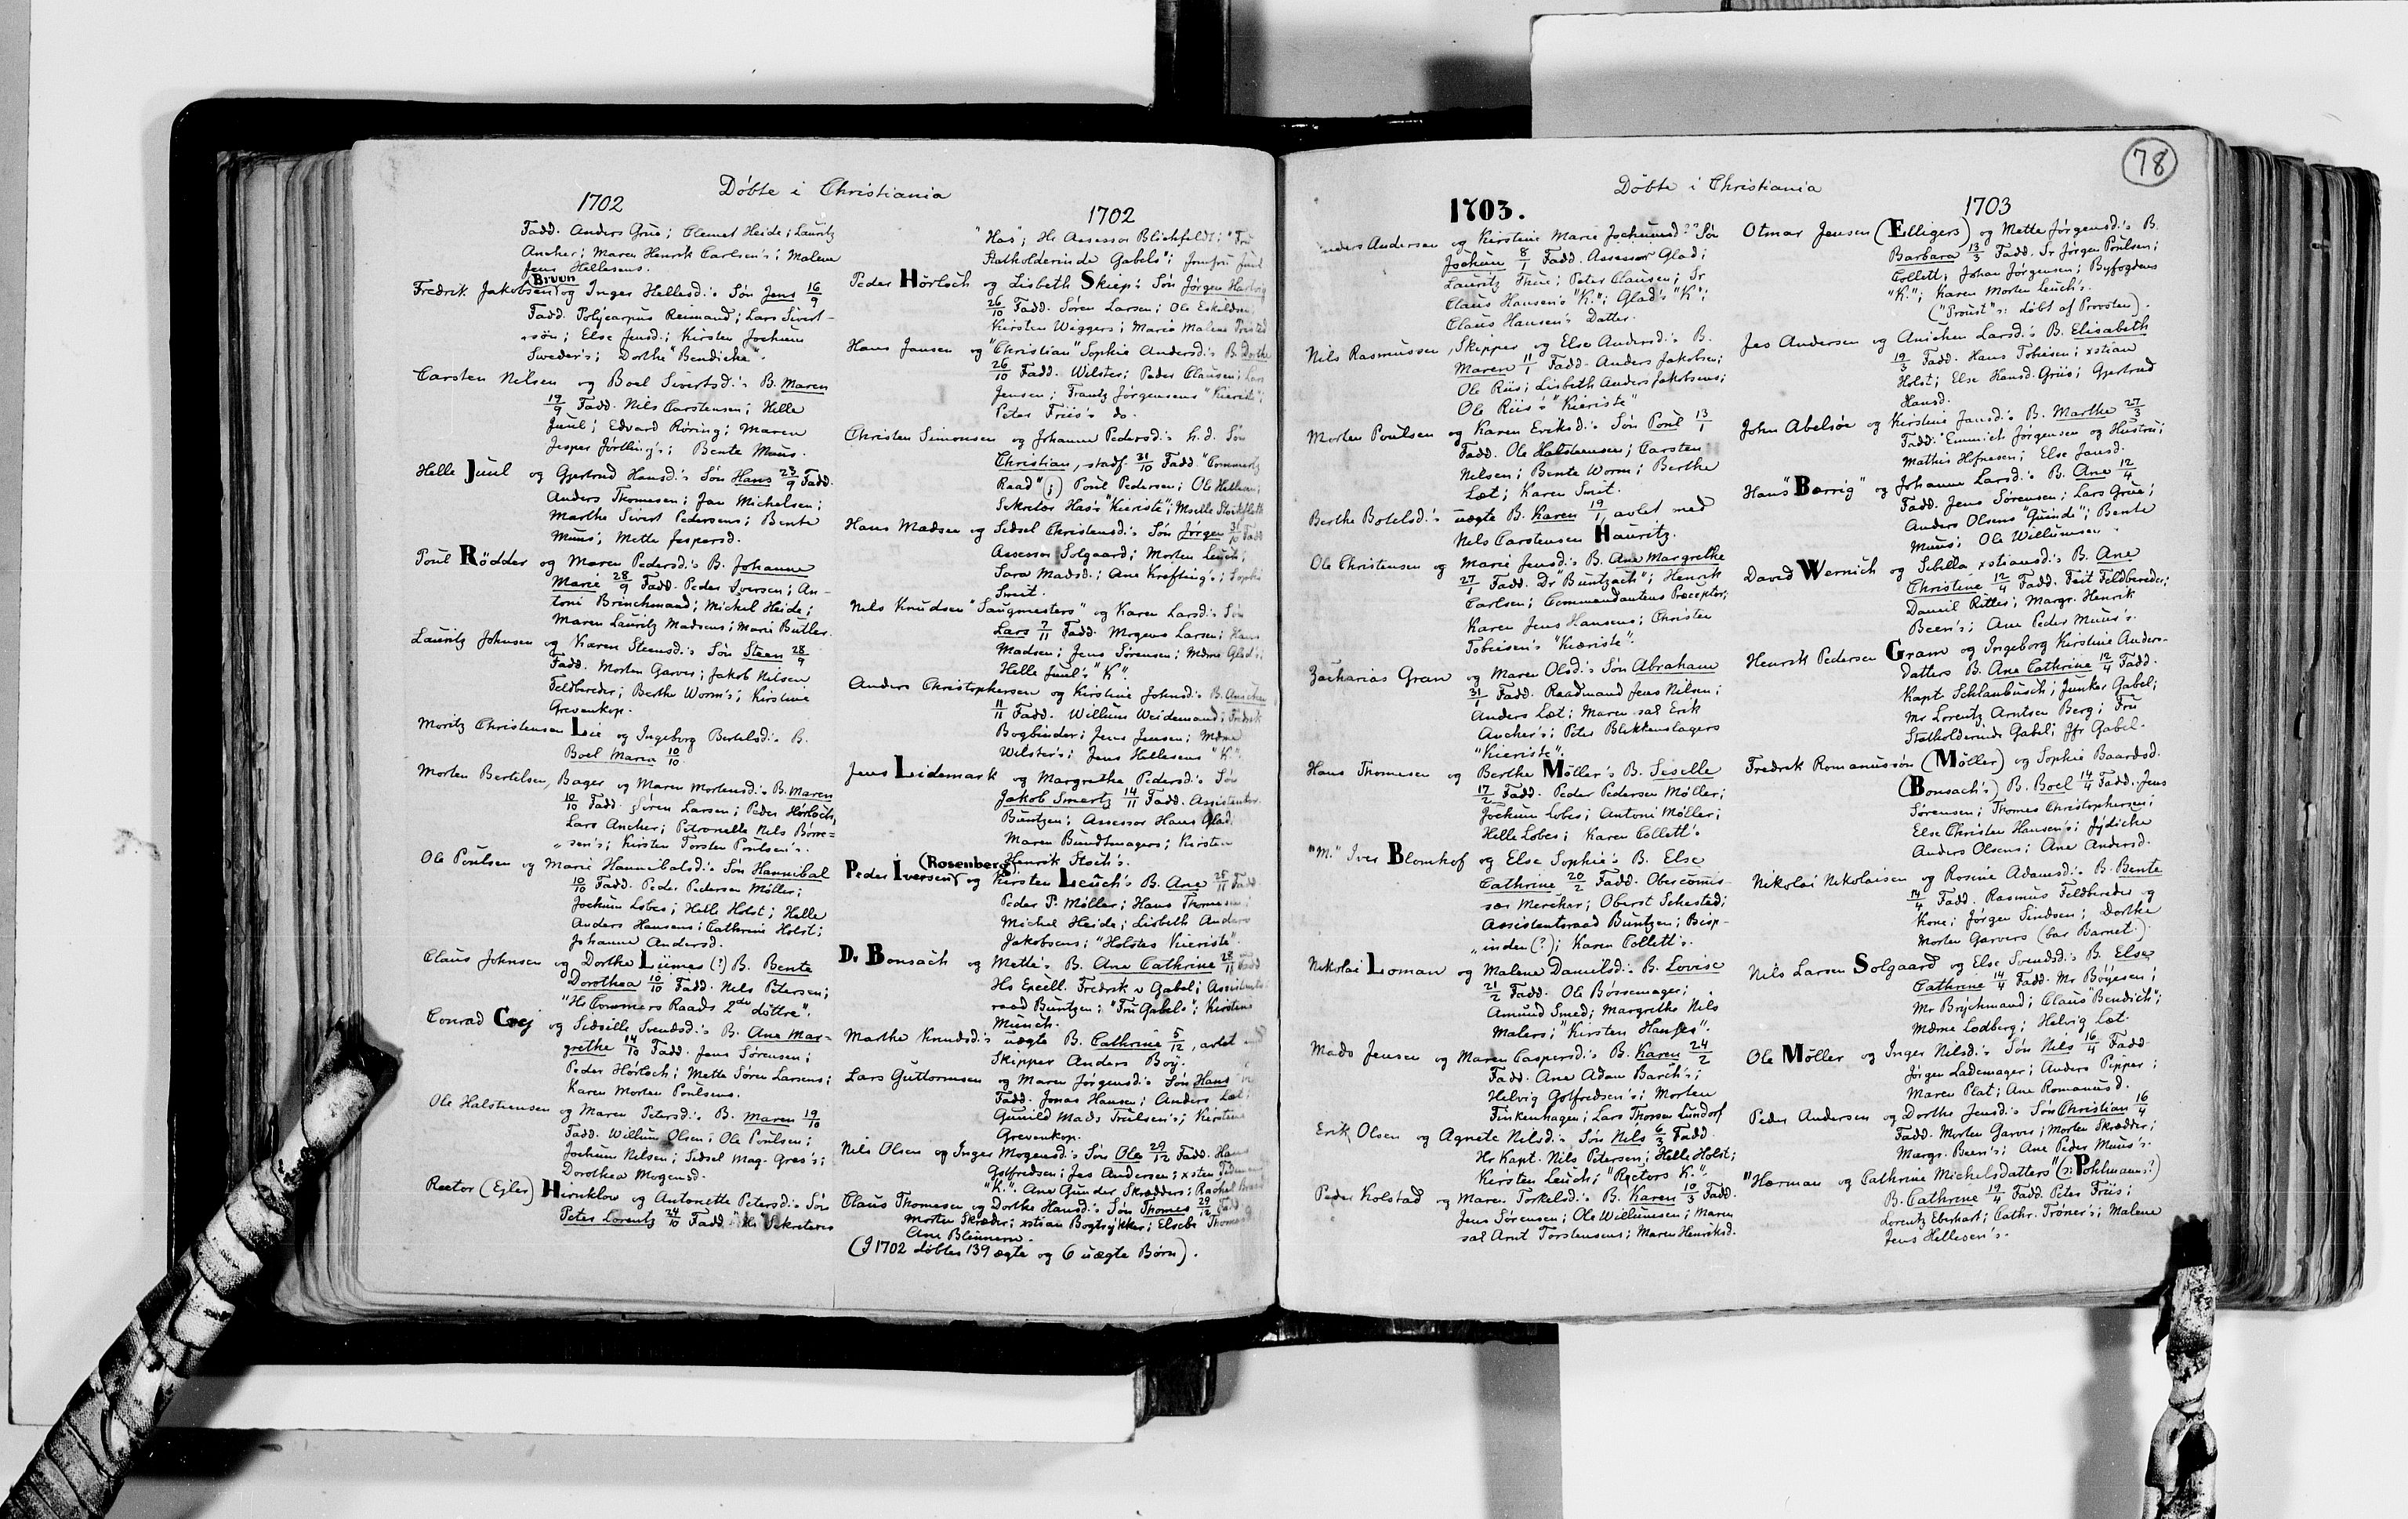 Döbte i Christiania
1702
Fadd. Anders Grue; Clemet Heide; Lauritz
Ancher; Maren Henrik Carlsen's; Malene
Jens Hellesens.
Bruun
Fredrik Jakobsen og Inger Hellesd.'s Søn Jens 16/9
Fadd. Polycarpus Reimand; Lars Sivert-
søn; Else Jensd.; Kirsten Jochum
Sweder's; Dorthe "Bendicke".
Carsten Nilsen og Boel Sivertsd.'s B. Maren
19/9 Fadd. Nils Carstensen; Helle
Juul; Edvard Røring; Maren
Jesper Jørtling's; Bente Muus.
Helle Juul og Gjertrud Hansd.'s Søn Hans 23/9 Fadd.
Anders Thomesen; Jan Michelsen;
Marthe Sivert Pedersens; Bente
Muus; Mette Jespersd.
Poul Rödder og Maren Pedersd.'s B. Johanne
Marie 28/9 Fadd. Peder Iversen; An-
toni Brinchmand; Mickel Heide;
Maren Lauritz Madsens; Marie Butler.
Lauritz Johnsen og Karen Steensd.'s Søn Steen 28/9
Fadd. Morten Garver; Jakob Nilsen
Feldbereder; Berthe Worm's; Kirstine
Grevenkop.
Moritz Christensen Lie og Ingeborg Bertelsd.'s B.
Boel Maria 10/10.
Morten Bertelsen, Bager og Maren Mortensd.'s B. Maren
10/10 Fadd. Søren Larsen; Peder Hørloch;
Lars Ancher; Petronelle Nils Børre-
sen's; Kirsten Torsten Poulsen's.
Ole Poulsen og Marie Hannibalsd.'s Søn Hannibal
10/10 Fadd. Peder Pedersen Møller;
Jochum Lobes; Helle Holst; Helle
Anders Hansens; Cathrine Holst;
Johanne Andersd.
Claus Johnsen og Dorthe Liimes (?) B. Bente
Dorothea 10/10 Fadd. Nils Petersen;
"Hr Commers Raads 2de döttre".
Conrad Grej og Sidselle Svendsd.'s B. Ane Mar-
grethe 14/10 Fadd. Jens Sørensen;
Peder Hørloch; Mette Søren Larsens;
Karen Morten Poulsens.
Ole Halstensen og Maren Petersd.'s B. Maren 19/10
Fadd. Willum Olsen; Ole Poulsen;
Jochum Nilsen; Sidsel Mag. Gres's;
Dorothea Mogensd.
Rector (Ejler) Hirnklow og Antonette Petersd.'s Søn
Peter Lorentz 24/10 Fadd. "Hr Sekreterer
1702
"Has"; Hr Assessor Blichfeldt; "Fru
Statholderinde Gabels"; Jomfru Juul
Peder Hörloch og Lisbeth Skiep's Søn Jörgen Hartvig
26/10 Fadd. Søren Larsen; Ole Eskildsen;
Kirsten Wiggers; Marie Malene
Hans Jansen og "Christian" Sophie Andersd.'s B. Dorthe
26/10 Fadd. Wilster; Peder Clausen; Lars
Jensen; Frantz Jørgensens "Kieriste";
Peter Friis's do.
Christen Simonsen og Johanne Pedersd.'s h.d. Søn
Christian, stadf. 31/10 Fadd. "Commertz
Raad" (;) Poul Pedersen; Ole Hellesen;
Sekretær Has's "Kieriste"; Mselle Stockfleth
Hans Madsen og Sidsel Christensd.'s Søn Jørgen 31/10 Fadd
Assessor Solgaard; Morten Leuch;
Sara Madsd.; Ane Krefting's; Sophie
Smit.
Nils Knudsen "Saugmesters" og Karen Larsd.'s Søn
Lars 7/11 Fadd. Mogens Larsen; Hans
Madsen; Jens Sørensen; Mdme Glad's;
Helle Juul's "K".
Anders Christophersen og Kirstine Johnsd.'s B. Anichen
11/11 Fadd. Willum Weidemand; Fredrik
Bogbinder; Jens Jensen; Mdme
Wilster's; Jens Hellesens "K".
Jens Lidemark og Margrethe Pedersd.'s Søn
Jakob Smertz 14/11 Fadd. Assistentsr.
Buntzen; Assessor Hans Glad;
Maren Bundtmagers; Kirsten
Henrik Stoch's.
(Rosenberg)
Peder Iversen og Kirsten Leuch's B. Ane 25/11 Fadd.
Peder P. Møller; Hans Thomesen;
Michel Heide; Lisbeth Anders
Jakobsens; "Holstes Kieriste".
D. Bonsach og Mette's B. Ane Cathrine 28/11 Fadd
Hs Excell. Fredrik v Gabel; Assistents-
raad Buntzen; "Fru Gabels"; Kirsten
Munch.
Marthe Knudsd.'s uægte B. Cathrine 5/12, avlet med
Skipper Anders Boy.
Lars Guttormsen og Maren Jørgensd.'s Søn Hans
Fadd. Jonas Hansen; Anders Læt;
Gunild Mads Truelsen's; Kirstine
Grevenkop.
Nils Olsen og Inger Mogensd.'s Søn Ole 29/12 Fadd. Hans
Golfredsen; Jes Andersen; xsten
"K". Ane Gunder Skrædders; Rachel
Claus Thomesen og Dorthe Hansd.'s Søn Thomes 29/12 Fadd
Morten Skræder; xstian Bogtrykker; Elsebe Thomesd
Ane Blennern.
(I 1702 døbtes 139 ægte og 6 uægte Børn).
78
Döbte i Christiania
1703.
Anders Andersen og Kirstine Marie Jochumsd.'s Søn
Jochum 8/1 Fadd. Assessor Glad;
Lauritz Thue; Peter Clausen; Sr
Claus Hansen's "K."; Glad's "K";
Claus Hansen's Datter.
Nils Rasmussen, Skipper og Else Andersd.'s B.
Maren 11/1 Fadd. Anders Jakobsen;
Ole Riis; Lisbeth Anders Jakobsens;
Ole Riis's "Kieriste"
Morten Poulsen og Karen Eriksd.'s Søn Poul 13/1
Fadd. Ole Halstensen; Carsten
Nilsen; Bente Worm; Berthe
Læt; Karen Smit.
Berthe Botelsd.'s uægte B. Karen 19/1, avlet med
Nils Carstensen Hauritz.
Ole Christensen og Marie Jensd.'s B. Ane Margrethe
27/1 Fadd. Dr "Buntzach"; Henrik
Carlsen; Commandantens Præceptor;
Karen Jens Hansens; Christen
Tobiesen's "Kiæriste".
Zacharias Gran og Maren Olsd.'s Søn Abraham
31/1 Fadd. Raadmand Jens Nilsen;
Anders Læt; Maren sal Erik
Ancher's; Peter Blikkenslagers
"Kieriste".
Hans Thomesen og Berthe Møller's B. Siselle
17/2 Fadd. Peder Pedersen Møller;
Jochum Lobes; Antoni Møller;
Helle Lobes; Karen Collett's
"M." Iver Blomhof og Else Sophie's B. Else
Cathrine 20/2 Fadd. Obercomis-
sær Mercker; Oberst Schested;
Assistentsraad Buntzen; Bisp-
inden (?); Karen Collett's.
Nikolai Loman og Malene Danielsd.'s B. Lovise
21/2 Fadd. Ole Børssemager;
Amund Smed; Margrethe Nils
Malers; "Kirsten Hanses".
Mads Jensen og Maren Caspersd.'s B. Karen 24/2
Fadd. Ane Adam Barch's;
Helvig Golfredsen's; Morten
Finkenhagen; Lars Thorsen Lundorf
Erik Olsen og Agnete Nilsd.'s Søn Nils 6/3 Fadd.
Hr Kapt. Nils Petersen; Helle Holst;
Kirsten Leuch; "Rectors K."
Peder Kolstad og Maren Torkelsd.'s B. Karen 10/3 Fadd.
Jens Sørensen; Ole Willumsen; Maren
sal Arnt Torstensens; Maren Henriksd.
1703
Otmar Jensen (Elligers) og Mette Jørgensd.'s B.
Barbara 13/3 Fadd. Sr Jørgen Poulsen;
Collett; Johan Jørgensen; Byfogdens
"K."; Karen Morten Leuch's.
("Proust"s: døbt af Provsten).
Jes Andersen og Anichen Larsd.'s B. Elisabeth
19/3 Fadd. Hans Tobiesen; xstian
Holst; Else Hansd. Griis; Gjertrud
Hansd.
John Abelsøn og Kirstine Jansd.'s B. Marthe 27/3
Fadd. "Emmich Jørgensen og Hustru;
Mathis Hofnesen; Else Jansd.
Hans "Bærrig" og Johanne Larsd.'s B. Ane 12/4
Fadd. Jens Sørensen; Lars Grue;
Anders Olsens "Quinde"; Bente
Muus; Ole Willumsen
David Wernich og Sibilla xstiansd.'s B. Ane
Christine 12/4 Fadd. Feit Feldbereder;
Daniel Ritter; Margr. Henrik
Been's; Ane Peder Muus's.
Henrik Pedersen Gram og Ingeborg Kirstine Anders-
datters B. Ane Cathrine 12/4 Fadd.
Kapt. Schlanbusch; Junker Gabel;
Mr Lorentz Arntsen Berg; Fru
Statholderinde Gabel; Jfr Gabel.
Fredrik Romanussøn (Møller) og Sophie Baardsd.
(Bonsach's) B. Boel 14/4 Fadd. Jens
Sørensen; Thomes Christophersen;
Else Christen Hansen's; Jydicke
Anders Olsens; Ane Andersd.
Nikolai Nikolaisen og Rosine Adamsd.'s B. Bente
14/4 Fadd. Rasmus Feldbereder og
Kone; Jørgen Sindsen; Dorthe
Morten Garvers (bar Barnet.).
Nils Larsen Solgaard og Else Svendsd.'s B. Else
Cathrine 14/4 Fadd. Mr Böyesen;
Mr Brÿchmand; Claus "Bendich";
Mdme Lodberg; Helvig Læt.
Ole Møller og Inger Nilsd.'s Søn Nils 16/4 Fadd.
Jørgen Lademager; Anders Pipper;
Maren Plat; Ane Romanusd.
Peder Andersen og Dorthe Jensd.'s Søn Christian 16/4
Fadd. Morten Garver; Morten Skrædder;
Margr. Been's; Ane Peder Muus's.
"Hærman og Cathrine Michelsdatters" (: Pohlmanns?)
B. Cathrine 19/4 Fadd. Peter Friis;
Lorentz Eberhart; Cathr. Trøner's; Malene
Jens Hellesen's.